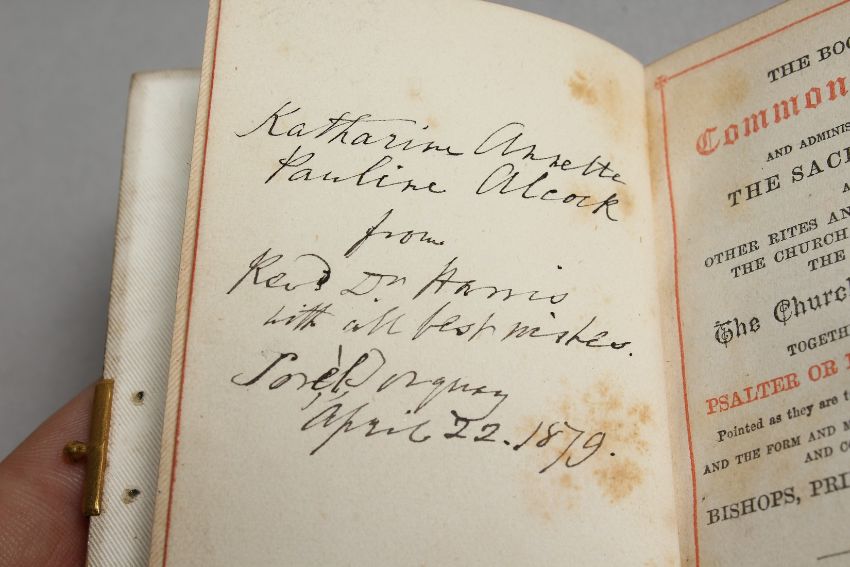 Katharine Annette
Pauline Alcock
from
Revd Dr Harris
with all best wishes.
Torquay
April 22. 1879.
THE BOO
Common
AND ADMINIS
THE SACR
A
OTHER RITES AN
THE CHURCH
THE
The Church
TOGETH
PSALTER OR
Pointed as they are t
AND THE FORM AND M
AND CO
BISHOPS, PRI